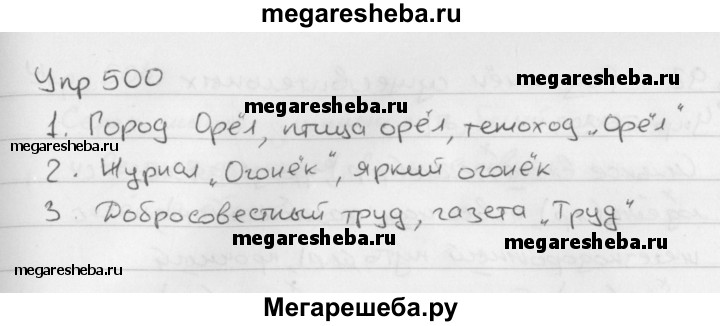 megaresheba.ru
Упр 500
megaresheba.ru
megaresheba.ru
1. Город Орёл, птица орёл, теплоход „Орёл"
megaresheba.ru
2. Журнал „Огонёк", яркий огонёк
megaresheba.ru
3. Добросовестный труд, газета „Труд"
megaresheba.ru
megaresheba.ru
megaresheba.ru
Мегарешеба.ру